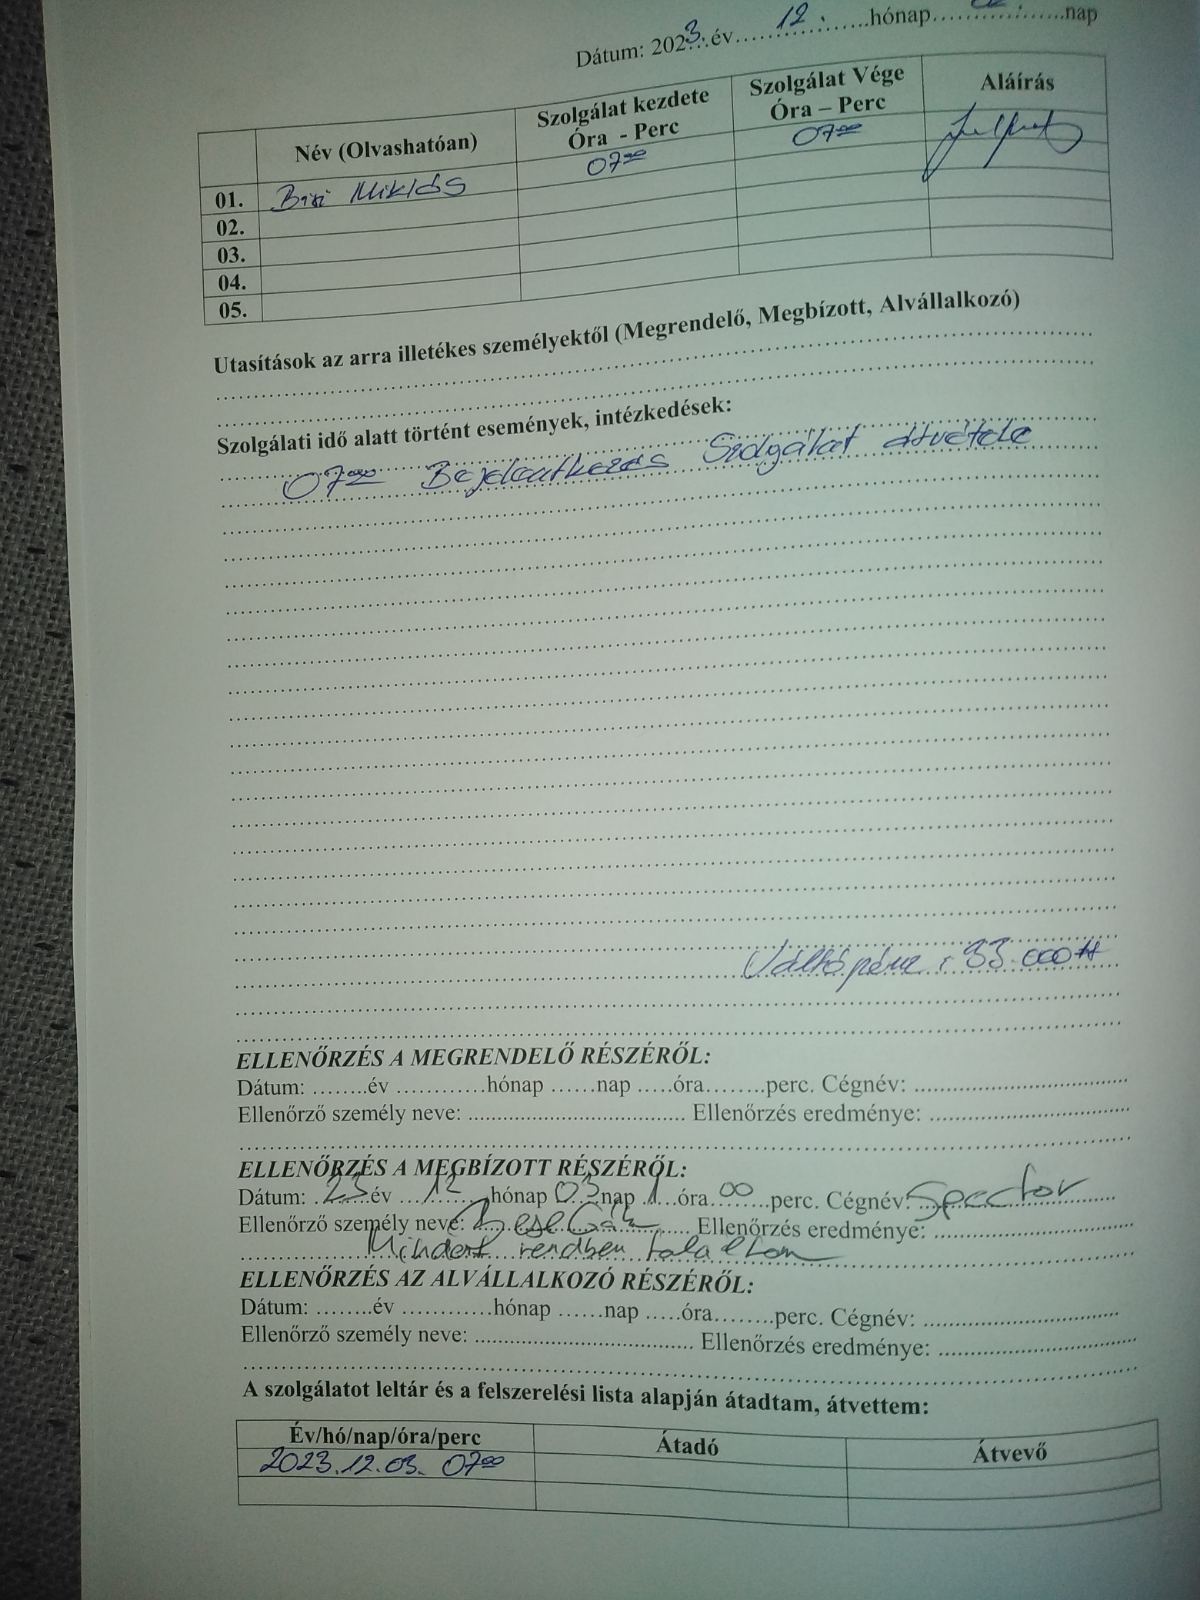 Dátum: 2023. év 12. hónap nap
Név (Olvashatóan) Szolgálat kezdete Óra - Perc Szolgálat Vége Óra – Perc Aláírás
01. Miklós 07⁰⁰ 07⁰⁰
02.
03.
04.
05.
Utasítások az arra illetékes személyektől (Megrendelő, Megbízott, Alvállalkozó)
Szolgálati idő alatt történt események, intézkedések:
07⁰⁰ Bejelentkezés Szolgálat átvétele
Váltópénz: 33.000 Ft
ELLENŐRZÉS A MEGRENDELŐ RÉSZÉRŐL:
Dátum: ........év ............hónap ......nap .....óra........perc. Cégnév: ..............................
Ellenőrző személy neve: .................................... Ellenőrzés eredménye: ..............................
ELLENŐRZÉS A MEGBÍZOTT RÉSZÉRŐL:
Dátum: 23 év 12 hónap 03 nap 1 óra 00 perc. Cégnév: Spector
Ellenőrző személy neve: Ellenőrzés eredménye: ..............................
Mindent rendben találtam
ELLENŐRZÉS AZ ALVÁLLALKOZÓ RÉSZÉRŐL:
Dátum: ........év ............hónap ......nap .....óra........perc. Cégnév: ..............................
Ellenőrző személy neve: .................................... Ellenőrzés eredménye: ..............................
A szolgálatot leltár és a felszerelési lista alapján átadtam, átvettem:
Év/hó/nap/óra/perc Átadó Átvevő
2023.12.03. 07⁰⁰